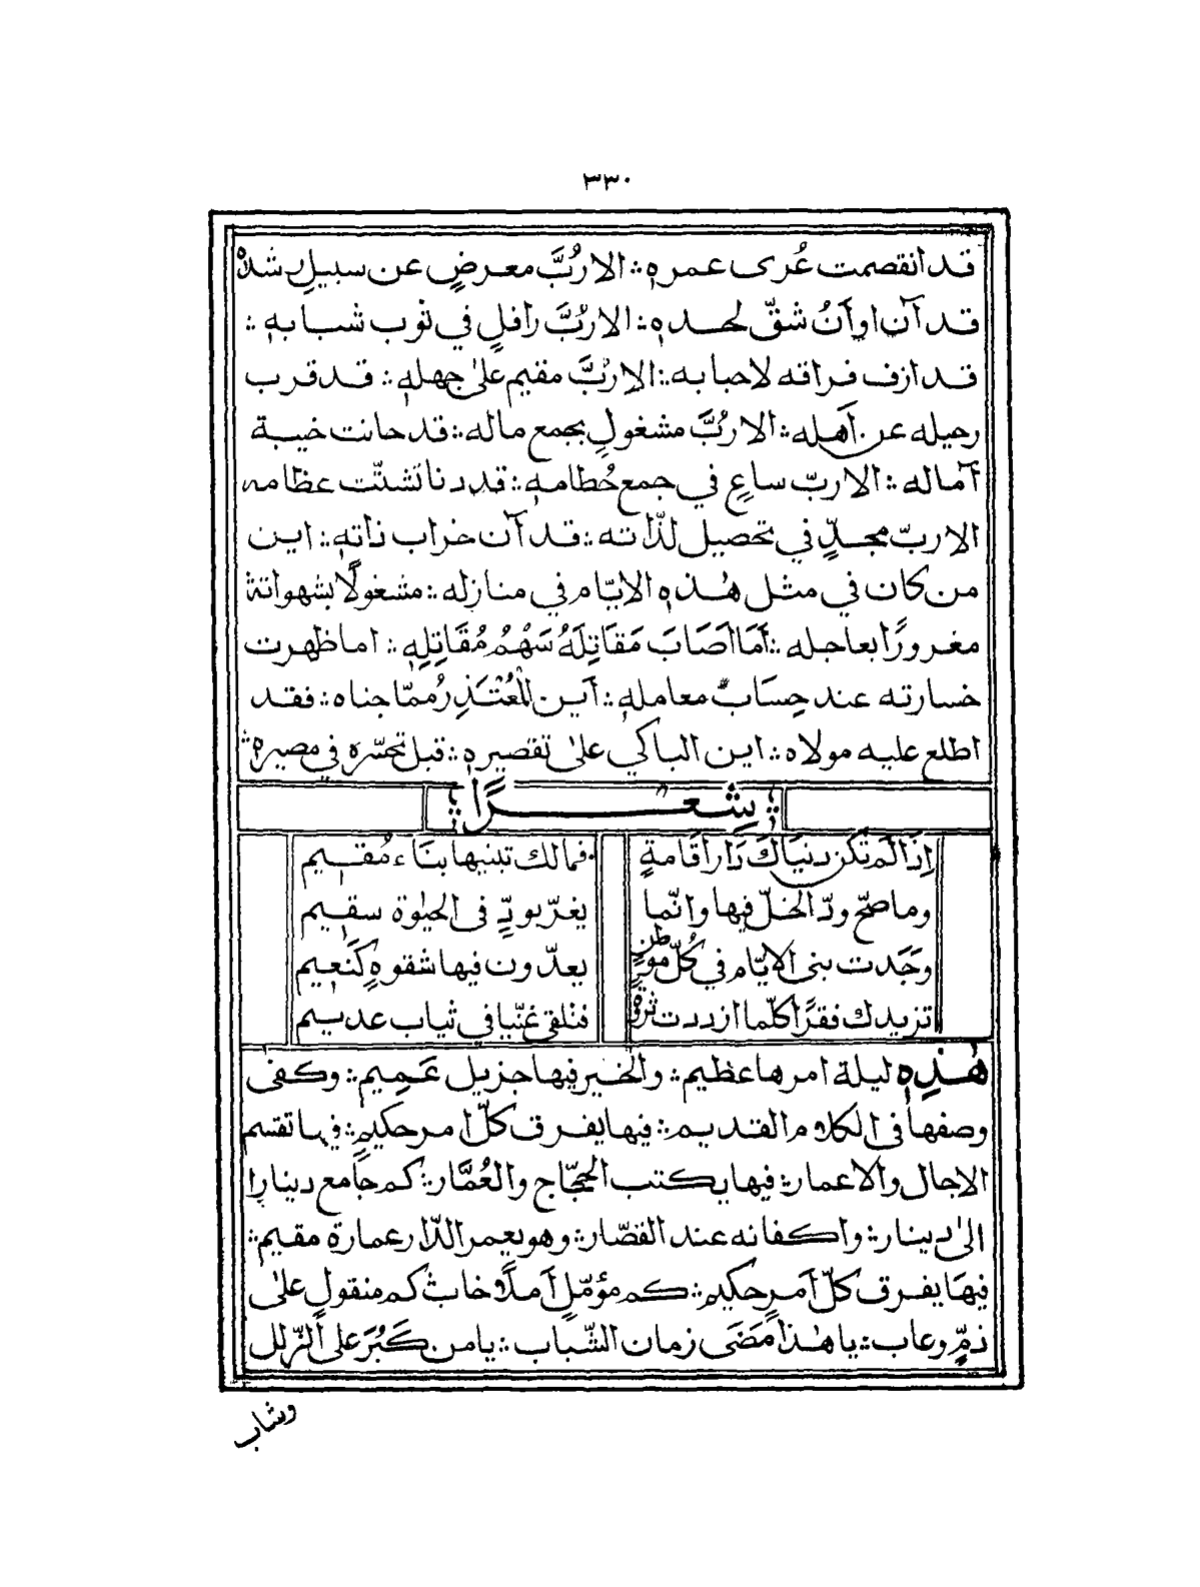 ٣٣٠
قد انقصمت عُرى عمره ؞ الا رُبَّ معرضٍ عن سبيلِ رشده
قد آن اوَانُ شقّ لحده ؞ الا رُبَّ رافلٍ في ثوب شبابه ؞
قد ازف فراقه لاحبابه ؞ الا رُبَّ مقيم على جهله ؞ قد قرب
رحيله عن اَهله ؞ الا رُبَّ مشغولٍ بجمع ماله ؞ قد حانت خيبة
آماله ؞ الا ربّ ساعٍ في جمع حُطامه ؞ قد دنا تشتّت عظامه
الا ربّ مجدٍّ في تحصيل لذّاته ؞ قد آن خراب ذاته ؞ اين
من كان في مثل هٰذه الايّام في منازله ؞ مشغولًا بشهواته
مغرورًا بعاجله ؞ اَمَا اَصَابَ مَقَاتِلَهُ سَهْمُ مُقَاتِلِهٖ ؞ اما ظهرت
خسارته عند حِسَابُ معامله ؞ اَين الْمُعْتَذِرُ ممّا جناه ؞ فقد
اطلع عليه مولاه ؞ اين الباكي على تقصيره ؞ قبل تحسّره في مصيره ؞
شِعـــرًا
اِذَا لَمْ تَكُن دنيَاكَ دَارَ اِقَامةٍ فمالك تبنيها بنَاء مُقـيم
وما صحّ ودّ الخلّ فيها وانّما يغرّ بودٍّ فى الحيٰوة سقيم
وجَدت بنى الايّام في كُلّ موطنٍ يعدّون فيها شقوهٍ كَنَعِيم
تزيدك فقرًا كلّما ازددت ثروة فتلقى غنيّا في ثياب عديم
هٰـذِهٖ ليلة امرها عظيم ؞ والخير فيها جزيل عَمِيم ؞ وكفى
وصفها فى الكلام القديم ؞ فيها يفرق كلّ امر حكيمٍ ؞ فيها تقسم
الاجال والاعمار ؞ فيها يكتب الحجّاج والعُمَّار ؞ كم جَامع دينارا
الى دينار ؞ واكفانه عند القصّار ؞ وهو يعمر الدّار عمارة مقيم ؞
فيهَا يفرق كلّ اَمرٍ حكيمٍ ؞ كم مؤمّلٍ اَملًا خاب ؞ كم منقولٍ على
ذمٍّ وعاب ؞ يا هٰذا مَضَى زمان الشّباب ؞ يا من كَبُرَ على الزّلل
وشاب